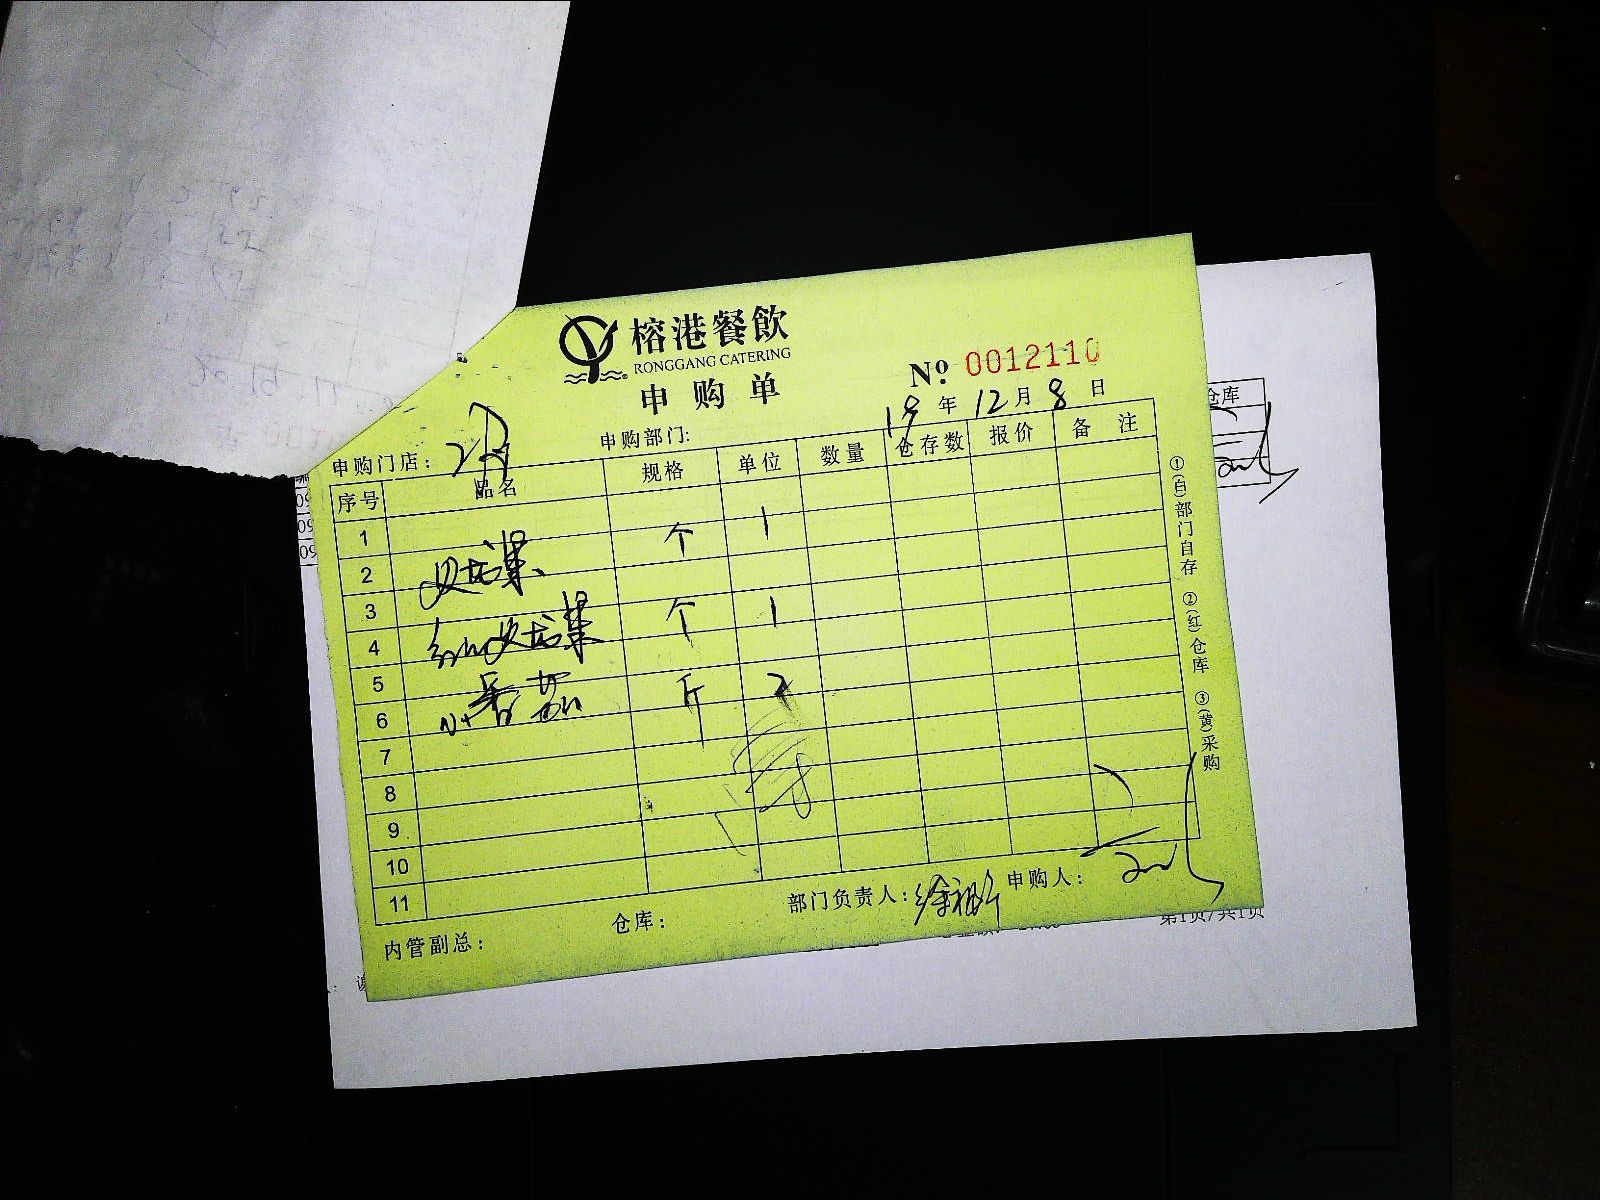 榕港餐飲
RONGGANG CATERING
申购单
№ 0012110
19年12月8日
申购门店：
申购部门:
序号 品名 规格 单位 数量 仓存数 报价 备注
1
2 火龙果 个 1
3
4 红火龙果 个 1
5
6 小番茄 斤 2
7
8
9
10
11
内管副总：
仓库：
部门负责人：
申购人：
①(白)部门自存 ②(红)仓库 ③(黄)采购
仓库
第1页/共1页